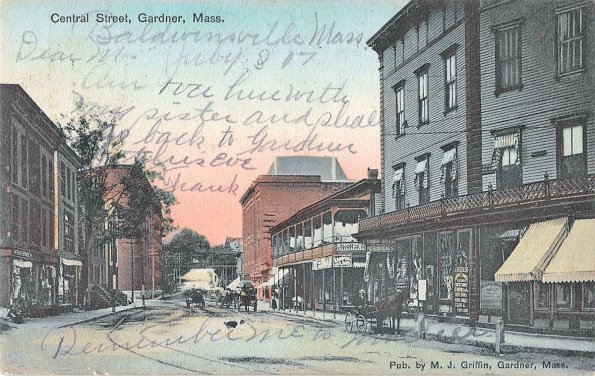 Central Street, Gardner, Mass.
Baldwinsville Mass.
Dear July 3 07
am over here with
my sister and shall
go back to Gardner
this eve
Thank
Remember me to
Pub. by M. J. Griffin, Gardner, Mass.